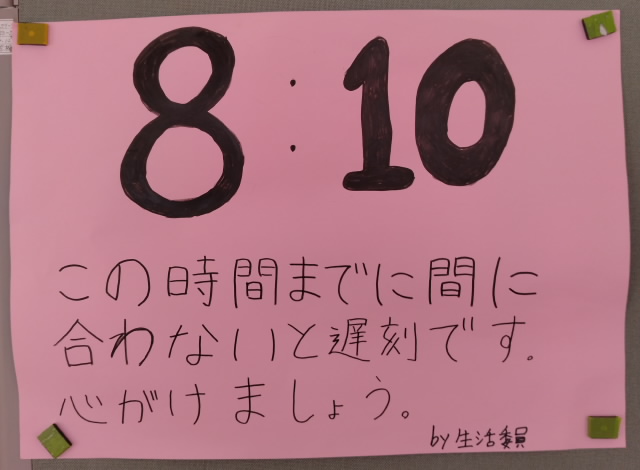 8:10
この時間までに間に
合わないと遅刻です。
心がけましょう。
by 生活委員